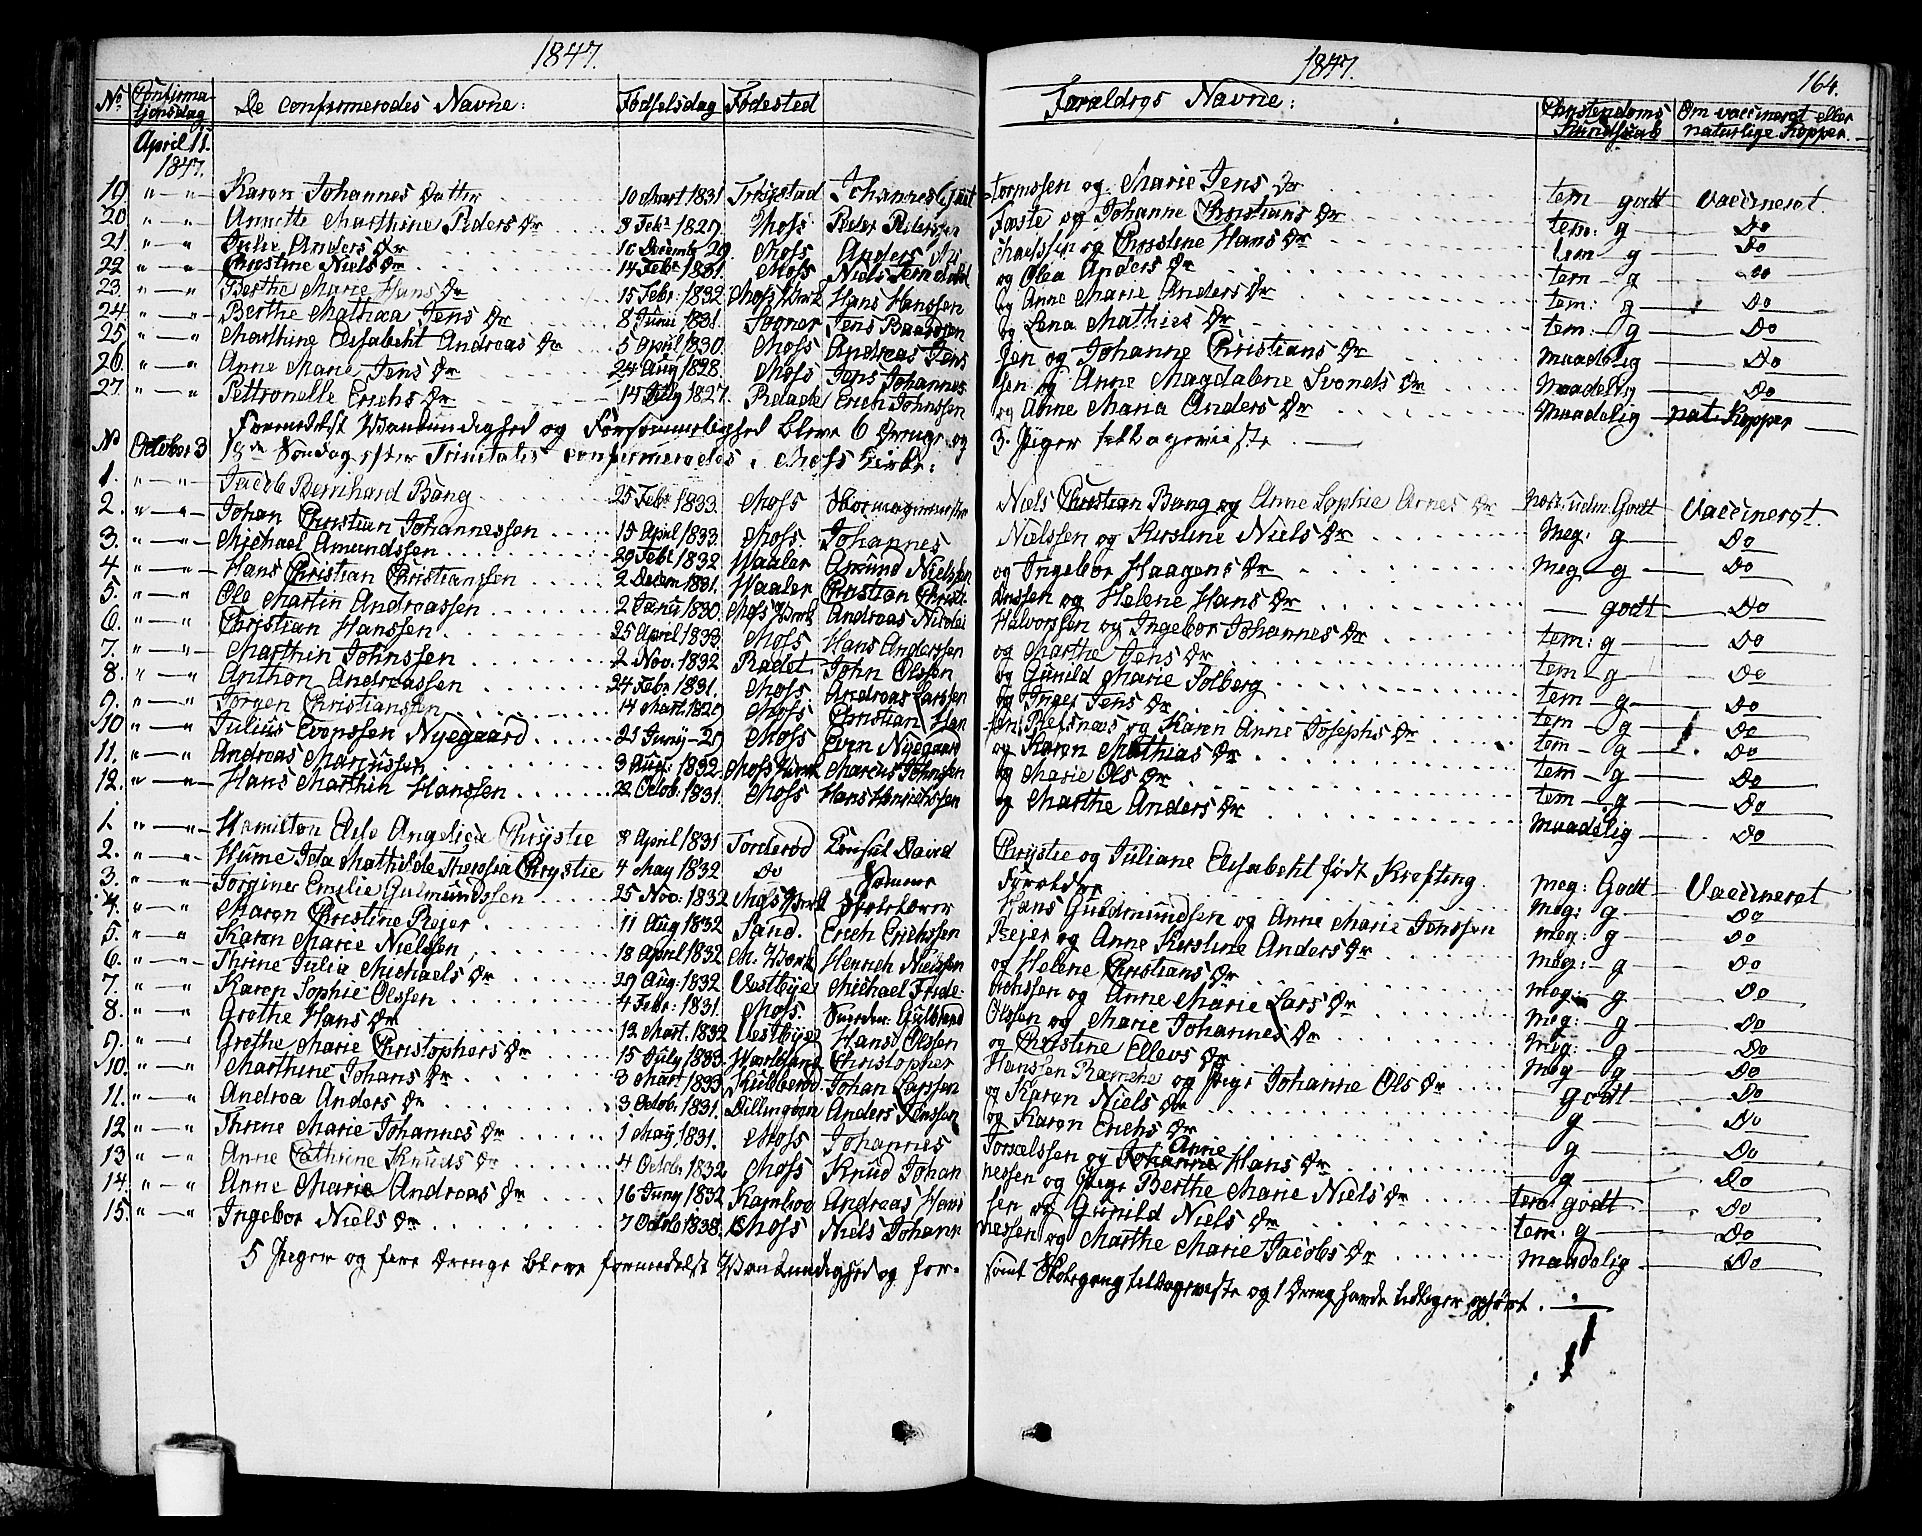 1847.
1847.
164.
No Confirmationsdag De confirmeredes Navne: Fødselsdag Fødested Forældres Navne: Christendoms Kundskab Om vaccineret eller naturlige Kopper.
April 11. 1847.
19. " — " Karen Johannes Datter 10 Mart 1831 Trøgstad Johannes Guttormssen og Marie Jens Dr tem — godt vaccineret.
20 " — " Annette Marthine Peders Dr 8 Febr 1829 Moss Peder Pederssen Faste og Johanne Christians Dr tem: g — Do
21. " — " Julie Anders Dr 16 Decemb 29. Moss Anders Michaelssen og Christine Hans Dr tem — g — Do
22 " — " Christine Niels Dr 14 Febr 1831. Moss Niels og Olea Anders Dr tem — g — Do
23. " — " Berthe Marie Hans Dr 15 Febr. 1832. Moss Værk Hans Hanssen og Anne Marie Anders Dr tem: g — Do
24. " — " Berthe Mathea Jens Dr 8 Juni 1831. Sogner Jens Baardsen og Lena Mathies Dr tem: g — Do
25. " — " Marthine Elisabeht Andreas Dr 5 April 1830. Moss Andreas Jenssen og Johanne Christians Dr maadelig — Do
26. " — " Anne Marie Jens Dr 24 Aug 1828. Moss Jens Johannessen og Anne Magdalene Svends Dr Maadelig — Do
27. " — " Pettronelle Erichs Dr 14 July 1827. Relade Erich Johnssen og Anne Maria Anders Dr Maadelig — nat: Kopper
Formedelst Vankundighed og Forsømmelighed bleve 6 Drenge og 3 Piger tilbageviiste.
No October 3 18de Søndag efter Trinitatis confirmeredes i Moss Kirke:
1. " — " Jacob Bernhard Bang 25 Febr 1833. Moss Skomagermester Niels Christian Bang og Anne Sophie Arnes Dr Godt vaccineret.
2. " — " Johan Christian Johannessen 15 April 1833. Moss. Johannes Nielssen og Kirstine Niels Dr Meg: g — Do
3. " — " Michael Amundssen 29 Febr 1832 Waaler Amund Nielssen og Ingebor Haagens Dr Meg — g — Do
4 " — " Hans Christian Christianssen 2 Decem 1831. Waaler Christian Christianssen og Helene Hans Dr — godt — Do
5. " — " Ole Martin Andreassen 2 Janu 1830. Moss Værk Andreas Nicolai Halvorssen og Ingebor Johannes Dr tem: g — Do
6. " — " Christian Hanssen 25 April 1833 Moss Hans Anderssen og Marthe Jens Dr tem — g — Do
7. " — " Marthin Johnssen 2 Nov. 1832 Radet John Olssen og Gunild Marie Solberg tem — g — Do
8. " — " Anthon Andreassen 24 Febr 1831. Moss Andreas Larssen og Inger Jens Dr tem — g — Do
9. " — " Jørgen Christianssen 14 Mart. 1829 Moss Christian Hanssen og Karen Anne Josephs Dr tem — g — Do
10 " — " Julius Evenssen Nyegaard 21 Juny — 29 Moss Even Nyegaard og Karen Mathias Dr tem — g — Do
11. " — " Andreas Marcussen 3 Aug: 1832. Moss Værk Marcus Johnssen og Marie Ols Dr tem — g — Do
12. " — " Hans Marthin Hanssen 22 Octob: 1831. Moss Hans Henrichssen og Marthe Anders Dr Maadelig — Do
1. " — " Hamilton Else Angelica Chrystie 8 April 1831 Torderød Consul David Chrystie og Juliane Elisabeht født Krefting Meg: Godt — Vaccineret
2. " — " Hume Ida Mathilde Theresia Chrystie 4 May 1832 Do Samme Forældre Meg: g — Do
3. " — " Jorginer Emilie Gulmundssen 25 Nov: 1832 Moss Værk Skolelærer Hans Guldmundsen og Anne Marie Jenssen meg: g — Do
4. " — " Maren Christine Rejer 11 Aug 1832 Sand. Erich Erichssen Rejer og Anne Kirstine Anders Dr meg: g — Do
5. " — " Karen Marie Nielsen 18 April 1832 M. Værk Henrich Nielssen og Helene Christians Dr meg: g — Do
6. " — " Thrine Julia Michaels Dr 29 Aug: 1832 Vestbye Michael Friderichssen og Anne Marie Lars Dr meg: g — Do
7. " — " Karen Sophie Olssen 4 Febr: 1831. Moss. Guldbrand Olssen og Marie Johannes Dr Meg: g — Do
8. " — " Grethe Hans Dr 12 Mart. 1832 Vestbye Hans Olssen og Christine Ellevs Dr Meg: g — Do
9. " — " Grethe Marie Christophers Dr 15 July 1833. Christopher Hanssen og Pige Johanne Ols Dr Meg — g — Do
10. " — " Marthine Johans Dr 3 Mart 1833 Johan Larssen og Karen Niels Dr godt — Do
11. " — " Andrea Anders Dr 3 Octob. 1831. Dillingøen Anders Jenssen og Karen Erichs Dr g — Do
12 " — " Thrine Marie Johannes Dr 1 May 1831. Moss Johannes Torselssen og Anne Hans Dr g — Do
13 " — " Anne Cathrine Knuds Dr 4 Octob. 1832 Moss Knud Johannessen og Pige Berthe Marie Niels Dr g — Do
14. " — " Anne Marie Andreas Dr 16 Juny 1832 Kamboe Andreas Hanssen og Gunild Niels Dr tem: godt — Do
15. " — " Ingebor Niels Dr 7 Octob 1832. Moss Niels Johannessen og Marthe Marie Jacobs Dr tem: g — Do
maadelig — Do
5 Piger og fire Drenge bleve formedelst Vankundighed og forsømt Skolegang tilbageviiste og 1 Dreng havde tidligere ophørt.